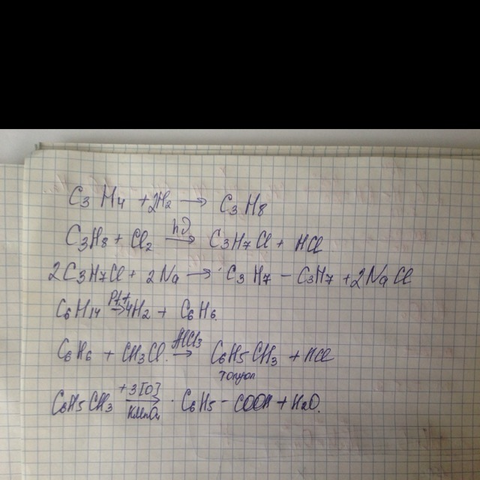 C3H4 + 2H2 → C3H8
C3H8 + Cl2 hν→ C3H7Cl + HCl
2C3H7Cl + 2Na → C3H7 – C3H7 + 2NaCl
C6H14 Pt,t→ 4H2 + C6H6
C6H6 + CH3Cl AlCl3→ C6H5CH3 + HCl
толуол
C6H5CH3 +3[O] KMnO4→ C6H5 – COOH + H2O.